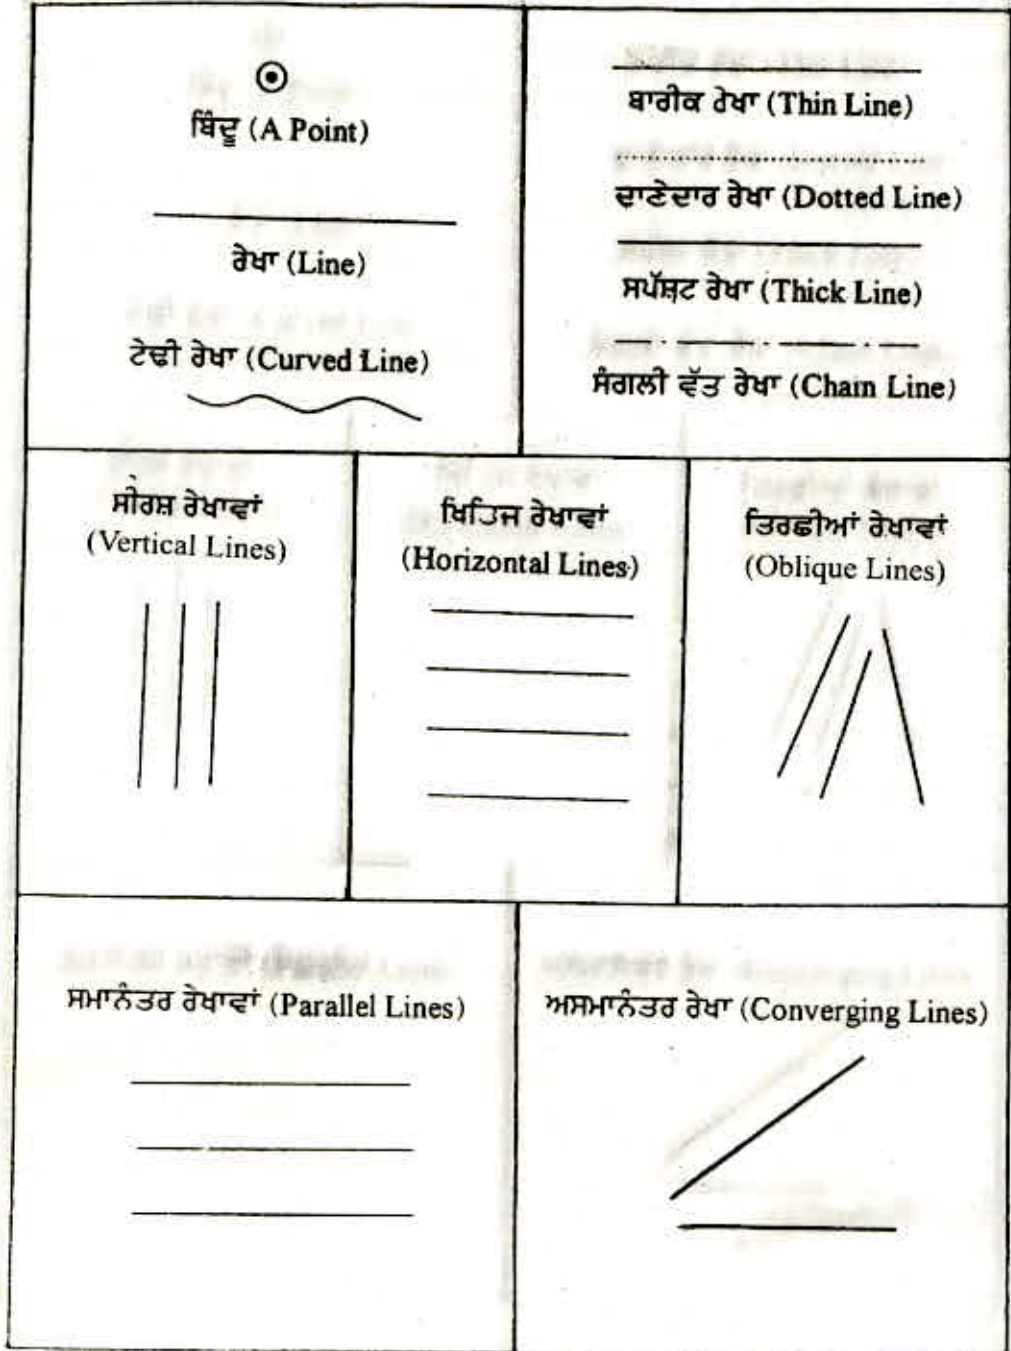 ਬਿੰਦੂ (A Point)
ਰੇਖਾ (Line)
ਟੇਢੀ ਰੇਖਾ (Curved Line)
ਬਾਰੀਕ ਰੇਖਾ (Thin Line)
ਢਾਣੇਦਾਰ ਰੇਖਾ (Dotted Line)
ਸਪੱਸ਼ਟ ਰੇਖਾ (Thick Line)
ਸੰਗਲੀ ਵੱਤ ਰੇਖਾ (Chain Line)
ਸੀਰਸ਼ ਰੇਖਾਵਾਂ
(Vertical Lines)
ਖਿਤਿਜ ਰੇਖਾਵਾਂ
(Horizontal Lines)
ਤਿਰਛੀਆਂ ਰੇਖਾਵਾਂ
(Oblique Lines)
ਸਮਾਨੰਤਰ ਰੇਖਾਵਾਂ (Parallel Lines)
ਅਸਮਾਨੰਤਰ ਰੇਖਾ (Converging Lines)